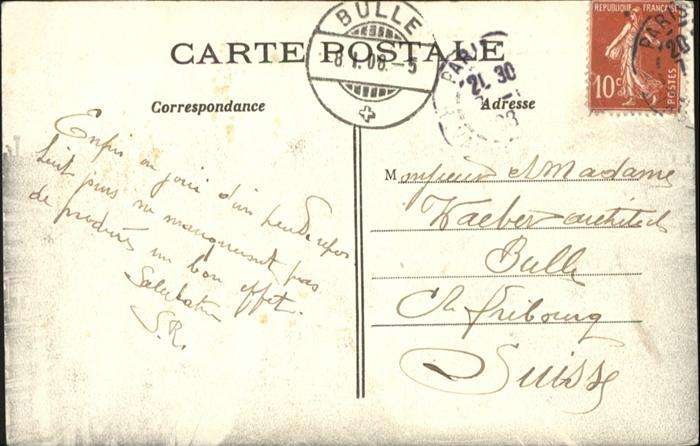 CARTE POSTALE
BULLE
8.I.08.-5
PARIS
21 30
REPUBLIQUE FRANÇAISE
10c
POSTES
PARIS
20
Correspondance
Adresse
Enfin on jouit d'un peu de repos
huit jours ne manqueront pas
de produire un bon effet.
Salutation
S.R.
Monsieur et Madame
Waeber architecte
Bulle
Ct. Fribourg
Suisse